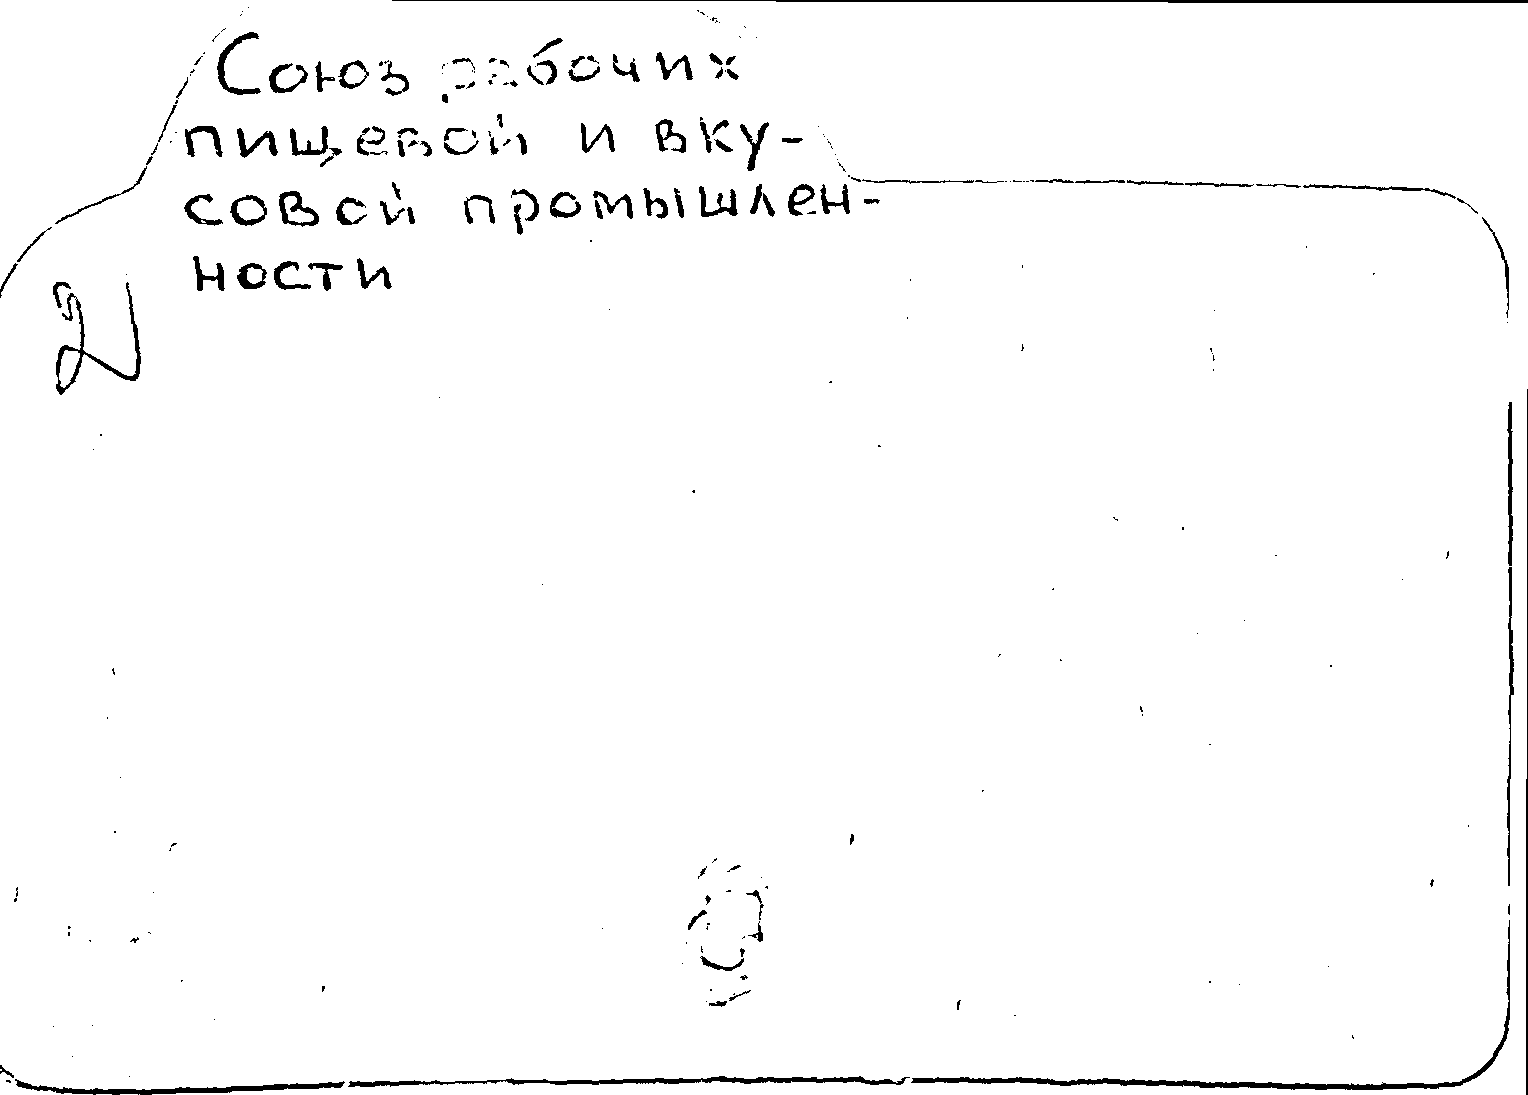 Союз рабочих
пищевой и вку-
совой промышлен-
ности